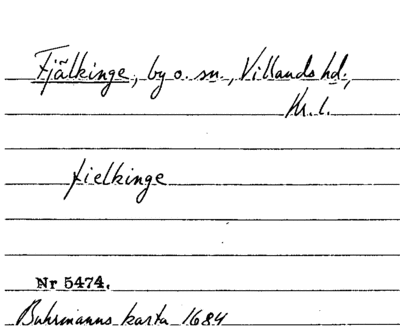 Fjälkinge, by o. sn., Villands hd.,
Kr. l.
fielkinge
Nr 5474.
Buhrmanns karta 1684